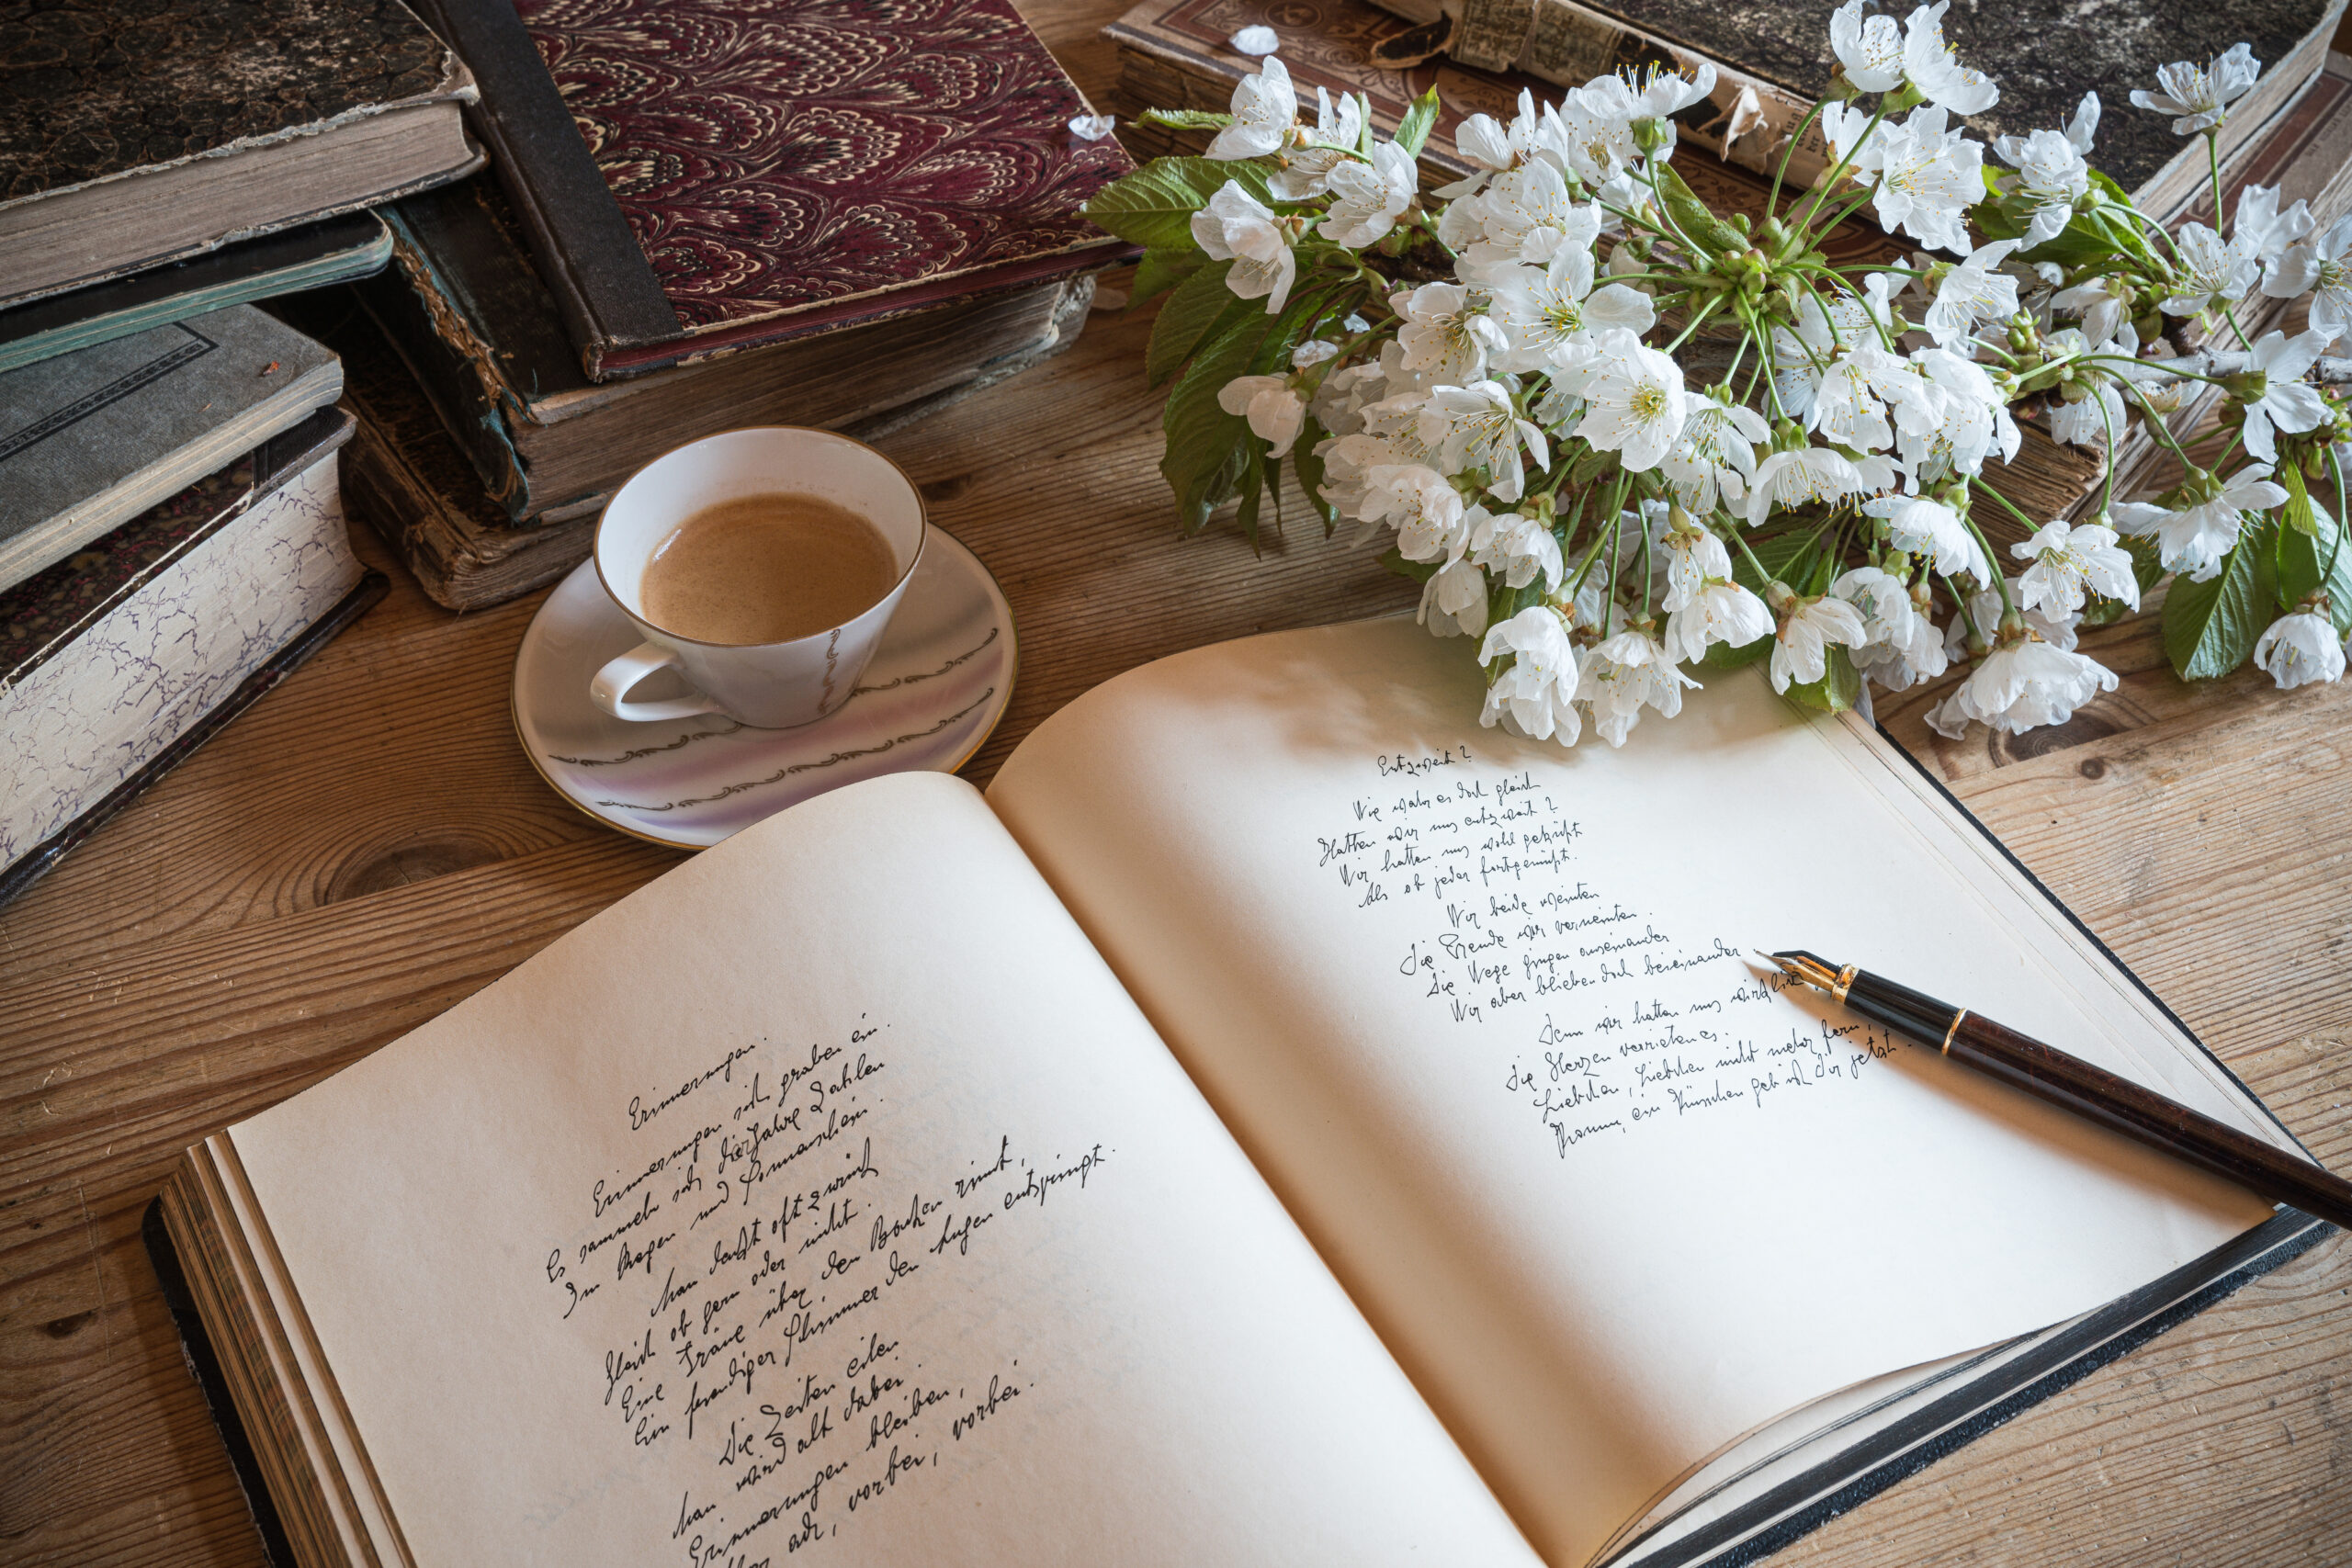 Erinnerungen.
Erinnerungen sich graben ein.
Es sammeln sich der Jahre Zahlen
Im Regen und Sonnenschein.
Man denkt oft zurück
Gleich ob gern oder nicht.
Eine Träne über den Backen rinnt,
Ein freudiger Schimmer den Augen entspringt.
Die Zeiten eilen
Man wird alt dabei.
Erinnerungen bleiben,
ach, vorbei, vorbei.
Entzweit?
Wie wahr es doch gleich
Hatten wir uns entzweit?
Wir hatten uns wohl geküßt
Als ob jeder fortgemüßt.
Wir beide weinten
Die Freude wir verneinten.
Die Wege gingen auseinander
Wir aber blieben doch beieinander
Denn wir hatten uns wirklich
Die Herzen verrieten es.
Liebchen, Liebchen nicht mehr fern,
Komm, ein Küsschen geb ich dir jetzt.